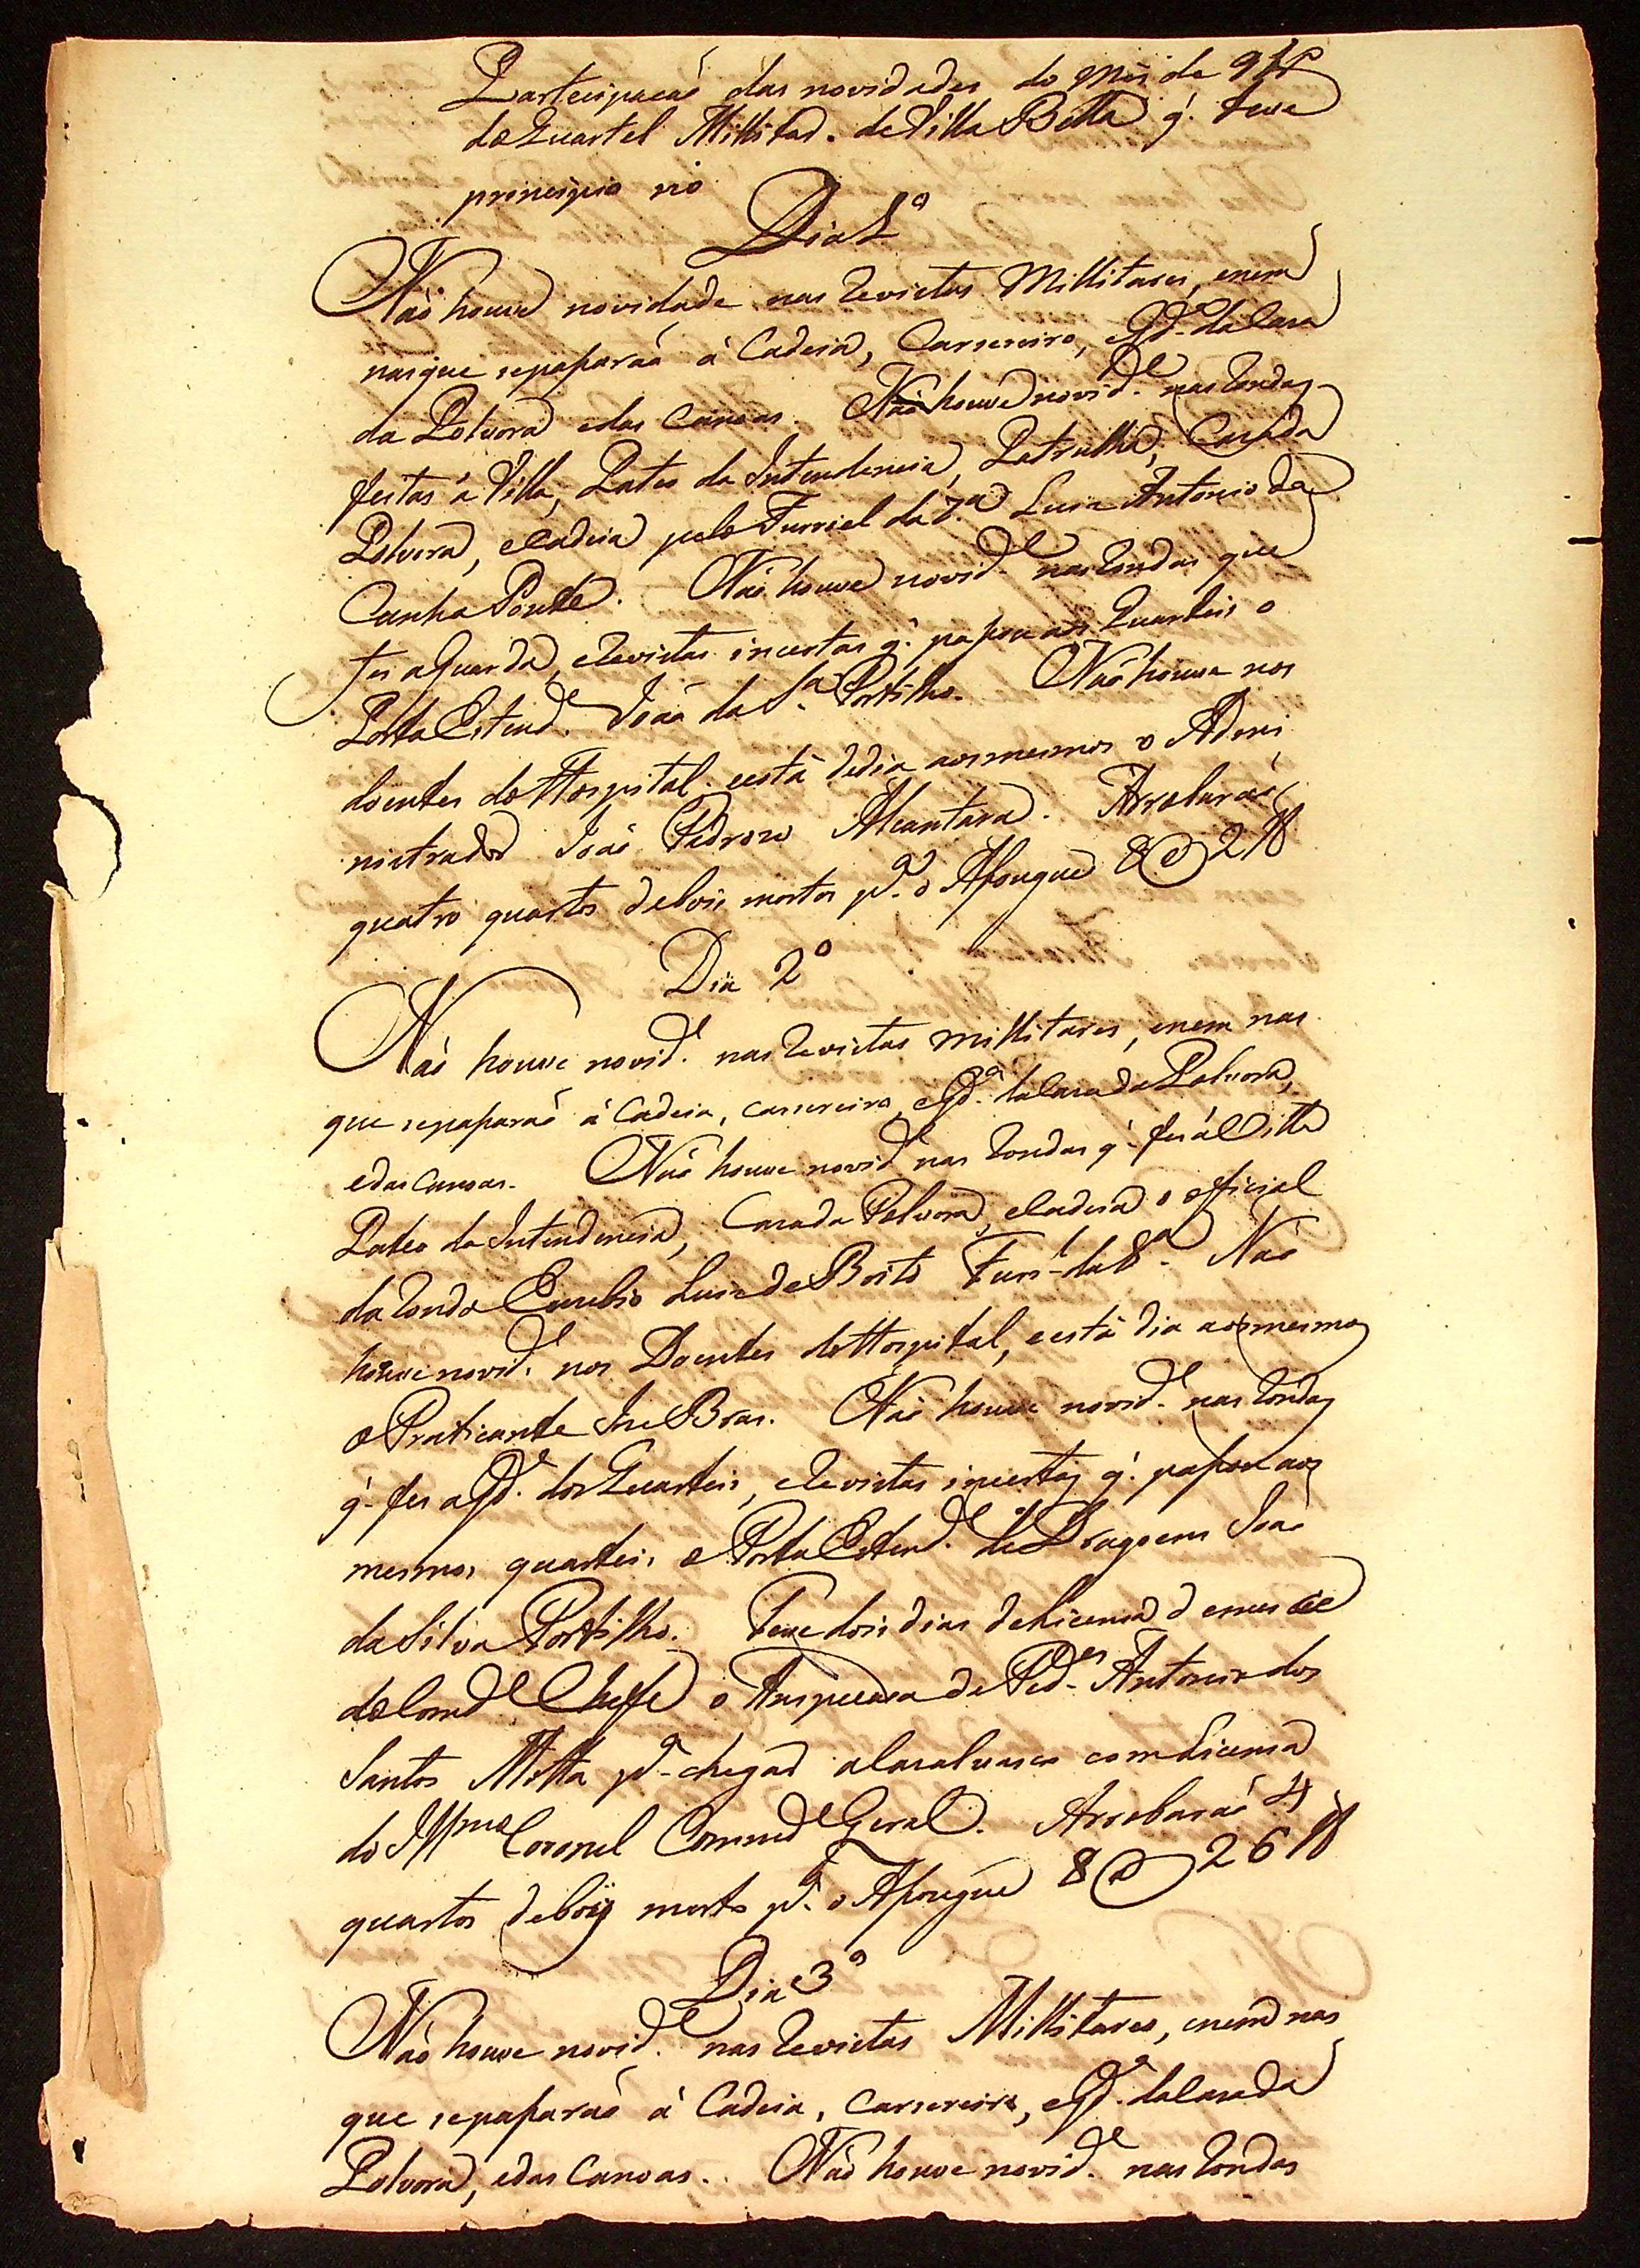 Partecipacaõ das novidades do Mes de 9bro
do Quartel Millitar. de Villa Bella q̃. teve
principio no
Dia 1º
Naõ houve novidade nas Revistas Millitares, enem
nasque sepaparaõ á Cadeia, Carsereiro, eGda. daCasa
da Polvora edas Canoas. Naõ houve novide. nas Rondas
feitas á Villa, Pateo da Intendencia, Patrulha, Casada
Polvora, eCadeia pelo Furriel da 7.a Luis Antonio da
Cunha Ponte. Naõ houve novide. nasRondas que
fes aGuarda, eRevistas incertas q̃. papou aos Quarteis o
Porta Estende. Joaõ da S.a Portilho. Naõ houve nos
doentes do Hospital. eestá dedia aosmesmos o Admi
nistrador Joaõ Pedrozo Alcantara. Arrobaraõ
quatro quartos debois mortos p.a o Afougue 8 @ 2 ℔
Dia 2º
Naõ houve novide. nasRevistas millitares, enem nas
que sepaparaõ á Cadeia, carsereiro, eGda. daCasada Polvora,
edas Canoas. Naõ houve novide nas Rondas q̃. fes áVilla
Pateo da Intendencia, Casada Polvora, eCadeia o official
daRonda Euzebio Luis de Brito Furr.l da 8a. Naõ
houve novide. nos Doentes do Hospital, eestá dia aosmesmos
o Praticante Jne Bras. Naõ houve novide. nas Rondas
q̃. fes aGda. dos Quarteis, eRevistas incertas q̃. papou aos
mesmos quarteis o Porta Estende. de Dragoens Joaõ
da Silva Portilho. Teve dois dias deLicensa
do Comde Cheffe o Anspecada de Pedes. Antonio dos
Santos Motta p.a chegar aCasalvasco comLicensa
do Illmo Coronel Commde Geral. Arrobaraõ 4
quartos deboiŷ morto p.a o Afougue 8 @ 26 ℔
Dia 3º
Naõ houve novide. nas Revistas Millitares, enem nas
que sepaparaõ á Cadeia, Carsereiro, eGda. daCasada
Polvora, edas Canoas. Naõ houve novide. nas Rondas